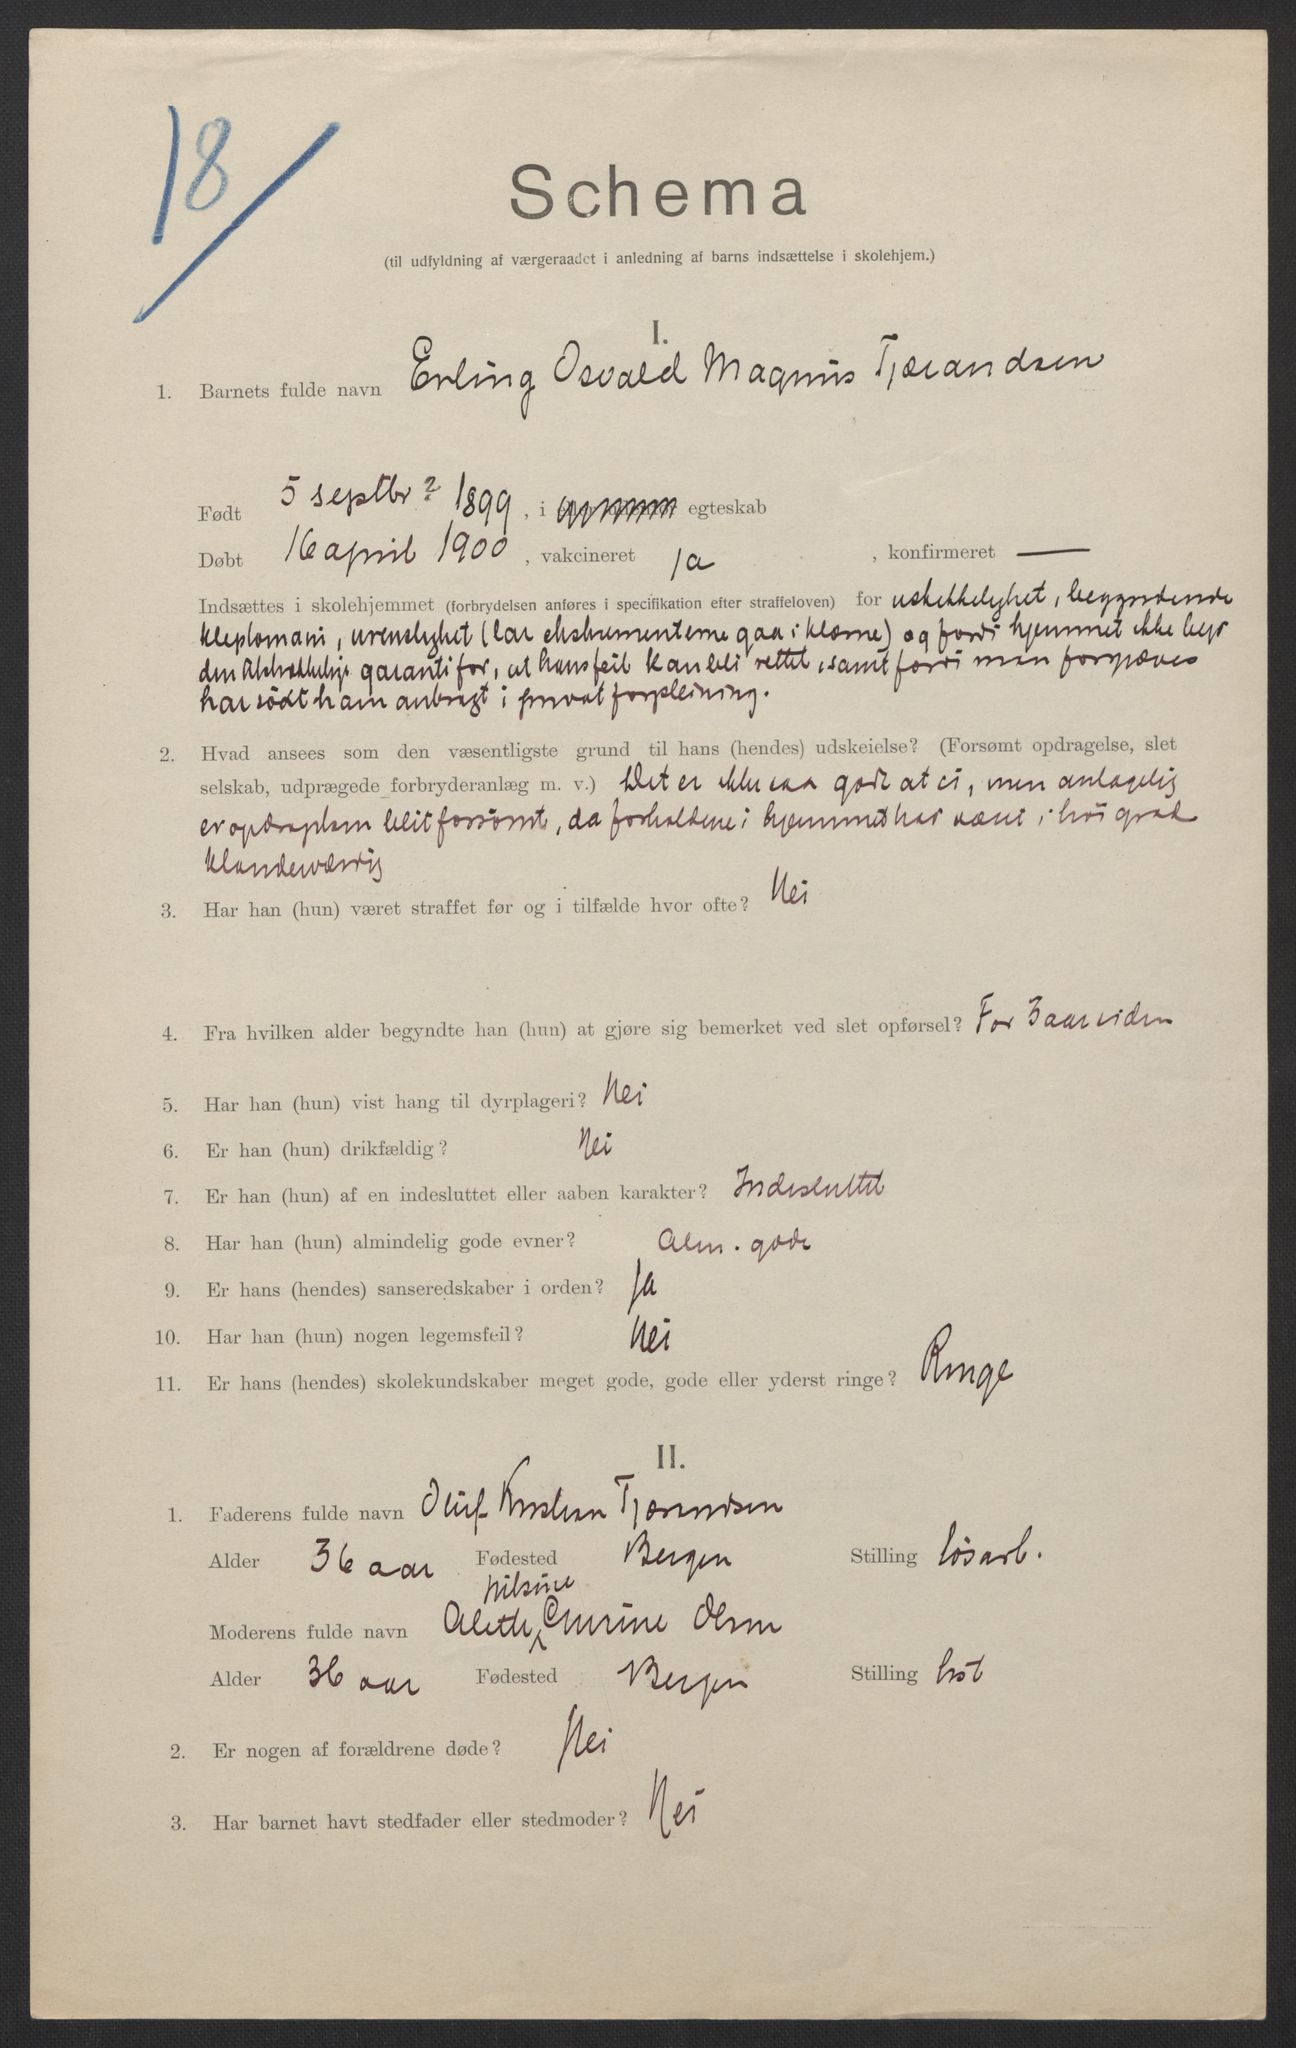 18
Schema
(til udfyldning af værgeraadet i anledning af barns indsættelse i skolehjem.)
I.
1. Barnets fulde navn Erling Osvald Magnus Tjærandsen
Født 5 septbr 1899, i egteskab
Døbt 16 april 1900, vakcineret ja, konfirmeret —
Indsættes i skolehjemmet (forbrydelsen anføres i specifikation efter straffeloven) for uskikkelighet, begyndende
kleptomani, urenslighet (lar ekskrementerne gaa i klærne) og fordi hjemmet ikke byr
den garanti for, at hans feil kan bli rettet, samt fordi man forgjæves
har søkt ham anbragt i privat forpleining.
2. Hvad ansees som den væsentligste grund til hans (hendes) udskeielse? (Forsømt opdragelse, slet
selskab, udprægede forbryderanlæg m. v.) Det er ikke saa godt at si, men antagelig
er opdragelsen blit forsømt, da forholdene i hjemmet har været i høi grad
klanderværdig
3. Har han (hun) været straffet før og i tilfælde hvor ofte? Nei
4. Fra hvilken alder begyndte han (hun) at gjøre sig bemerket ved slet opførsel? For 3 aar siden
5. Har han (hun) vist hang til dyrplageri? Nei
6. Er han (hun) drikfældig? Nei
7. Er han (hun) af en indesluttet eller aaben karakter? Indesluttet
8. Har han (hun) almindelig gode evner? Alm. gode
9. Er hans (hendes) sanseredskaber i orden? Ja
10. Har han (hun) nogen legemsfeil? Nei
11. Er hans (hendes) skolekundskaber meget gode, gode eller yderst ringe? Ringe
II.
1. Faderens fulde navn Oluf Kristian Tjærandsen
Alder 36 aar Fødested Bergen Stilling løsarb.
Nilsine
Moderens fulde navn Alette Olsen
Alder 36 aar Fødested Bergen Stilling
2. Er nogen af forældrene døde? Nei
3. Har barnet havt stedfader eller stedmoder? Nei